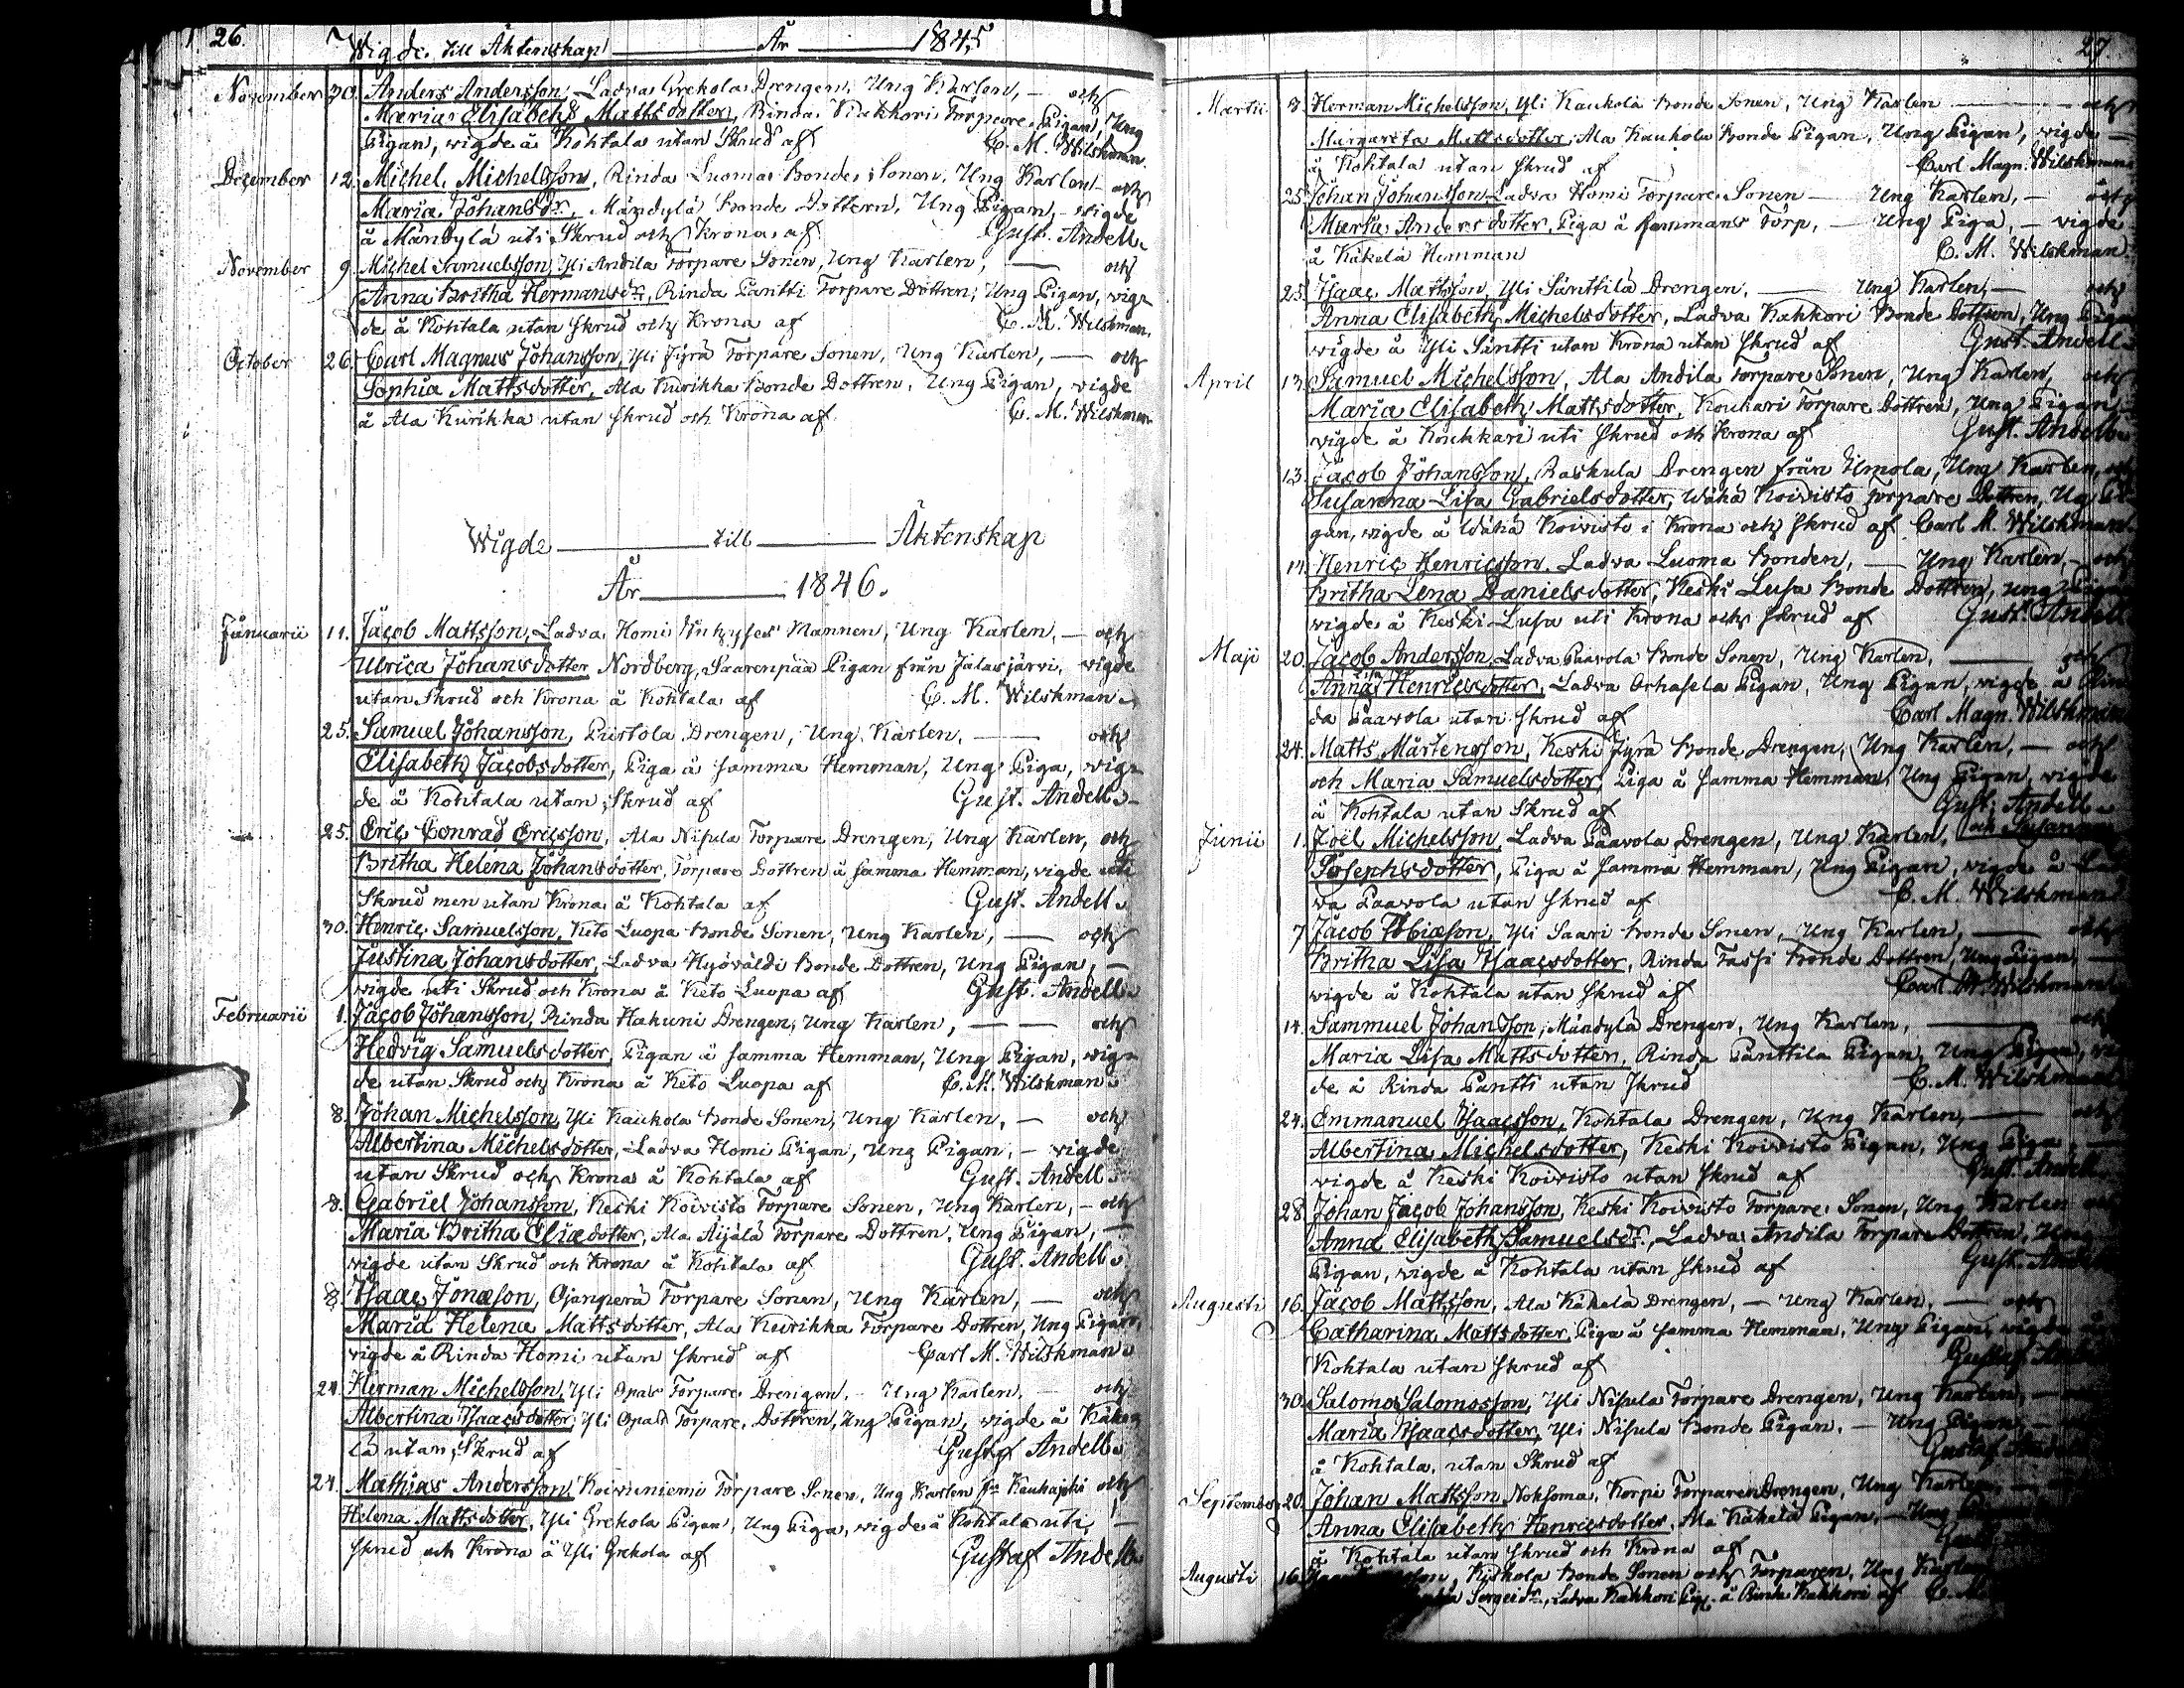 26. Wigde till Äktenskap År 1845
November 30. Anders Andersson, Ladva Grekola Drengen, Ung Karlen, — och
Maria Elisabeth Mattsdotter, Rinda Kakkori Torpare Pigan, Ung
Pigan, wigde å Kohtala utan Skrud af C. M. Wilskman.
December 12. Michel Michelsson, Rinda Luoma Bonde Sonen, Ung Karlen — och
Maria Johansdr, Mändylä Bonde Dottern, Ung Pigan, — wigde
å Mändylä uti Skrud och Krona af Gust. Andell.
November 9. Michel Samuelsson, Yli Andila Torpare Sonen, Ung Karlen, — och
Anna Britha Hermansdr, Rinda Pantti Torpare Dottren, Ung Pigan, wig-
de å Kohtala utan Skrud och Krona af C. M. Wilskman.
October 26. Carl Magnus Johansson, Yli Jyrä Torpare Sonen, Ung Karlen, — och
Sophia Mattsdotter, Ala Kurikka Bonde Dottren, Ung Pigan, wigde
å Ala Kurikka utan Skrud och Krona af C. M. Wilskman
Wigde — till — Äktenskap
År — 1846.
Januarii 11. Jacob Mattsson, Ladva Homi Mannen, Ung Karlen, — och
Ulrica Johansdotter Nordberg, Saarenpää Pigan från Jalasjärvi, wigde
utan Skrud och Krona å Kohtala af C. M. Wilskman.
25. Samuel Johansson, Purtola Drengen, Ung Karlen, — och
Elisabeth Jacobsdotter, Piga å samma Hemman, Ung Piga, wig-
de å Kohtala utan Skrud af Gust. Andell.
25. Eric Conrad Ericsson, Ala Nisula Torpare Drengen, Ung Karlen, och
Britha Helena Johansdotter, Torpare Dottren å samma Hemman, wigde uti
Skrud men utan Krona å Kohtala af Gust. Andell.
30. Henric Samuelsson, Keto Luopa Bonde Sonen, Ung Karlen, — och
Justina Johansdotter, Ladva Hyöväldi Bonde Dottren, Ung Pigan, —
wigde uti Skrud och Krona å Keto Luopa af Gust. Andell.
Februarii 1. Jacob Johansson, Rinda Hakuni Drengen, Ung Karlen, — — och
Hedvig Samuelsdotter, Pigan å samma Hemman, Ung Pigan, wig-
de utan Skrud och Krona å Keto Luopa af C. M. Wilskman.
8. Johan Michelsson, Yli Kaukola Bonde Sonen, Ung Karlen, — och
Albertina Michelsdotter, Ladva Homi Pigan, Ung Pigan, — wigde
utan Skrud och Krona å Kohtala af Gust. Andell.
8. Gabriel Johansson, Keski Koivisto Torpare Sonen, Ung Karlen, — och
Maria Britha Eliædotter, Ala Äijälä Torpare Dottren, Ung Pigan, —
wigde utan Skrud och Krona å Kohtala af Gust. Andell.
8. Isaac Jonæson, Ojanperä Torpare Sonen, Ung Karlen, — och
Maria Helena Mattsdotter, Ala Kurikka Torpare Dottren, Ung Pigan,
wigde å Rinda Homi utan Skrud af Carl M. Wilskman.
24. Herman Michelsson, Yli Opas Torpare Drengen, — Ung Karlen, — och
Albertina Isaacsdotter, Yli Torpare Dottren, Ung Pigan, wigde å Käke-
lä utan Skrud af Gustaf Andell.
24. Mathias Andersson, Koivuniemi Torpare Sonen, Ung Karlen fr. Kauhajoki och
Helena Mattsdotter, Yli Grekola Pigan, Ung Piga, wigde å Kohtala uti —
Skrud och Krona å Yli Grekola af Gustaf Andell.
27.
Martii 8. Herman Michelsson, Yli Kaukola Bonde Sonen, Ung Karlen — och
Margareta Mattsdotter, Ala Kaukola Bonde Pigan, Ung Pigan, wigde —
å Kohtala utan Skrud af Carl Magn. Wilskman
25. Johan Johansson, Ladva Homi Torpare Sonen — Ung Karlen, — och
Maria Andersdotter, Piga å sammans Torp, — Ung Piga, — wigde
å Käkelä Hemman C. M. Wilskman.
25. Isaac Mattsson, Yli Säntti­lä Drengen, — Ung Karlen, — och
Anna Elisabeth Michelsdotter, Ladva Kakkori Bonde Dottren, Ung Pigan
wigde å Yli Säntti utan Krona utan Skrud af Gust. Andell.
April 13. Samuel Michelsson, Ala Andila Torpare Sonen, Ung Karlen, och
Maria Elisabeth Mattsdotter, Koukari Torpare Dottren, Ung Pigan
wigde å Koukkari uti Skrud och Krona af Gust. Andell.
13. Jacob Johansson, Raskula Drengen från Ilmola, Ung Karlen, och
Susanna Lisa Gabrielsdotter, Wähä Koivisto Torpare Dottren, Ung Pi-
gan, wigde å Wähä Koivisto i Krona och Skrud af Carl M. Wilskman.
14. Henric Henricsson, Ladva Luoma Bonden, — Ung Karlen, — och
Britha Lena Danielsdotter, Keski Lusa Bonde Dottren, Ung Pigan
wigde å Keski Lusa uti Krona och Skrud af Gust. Andell
Maji 20. Jacob Andersson, Ladva Paavola Bonde Sonen, Ung Karlen, — och
Anna Lisa Henricsdotter, Ladva Orhasela Pigan, Ung Pigan, wigde å Rin-
da Paavola utan Skrud af Carl Magn. Wilskman
24. Matts Mårtensson, Keski Jyrä Bonde Drengen, Ung Karlen, — och
och Maria Samuelsdotter, Piga å samma Hemman, Ung Pigan, wigde
å Kohtala utan Skrud af Gust. Andell.
Junii 1. Joël Michelsson, Ladva Paavola Drengen, Ung Karlen, och Susanna
Josephsdotter, Piga å samma Hemman, Ung Pigan, wigde å Lad-
va Paavola utan Skrud af C. M. Wilskman
7. Jacob Tobiæson, Yli Saari Bonde Sonen, Ung Karlen, — och
Britha Lisa Isaacsdotter, Rinda Tassi Bonde Dottren, Ung Pigan,
wigde å Kohtala utan Skrud af Carl M. Wilskman
14. Sammuel Johansson, Mändylä Drengen, Ung Karlen, — och
Maria Lisa Mattsdotter, Rinda Pänttila Pigan, Ung Pigan, wig-
de å Rinda Pantti utan Skrud C. M. Wilskman
24. Emmanuel Isaacsson, Kohtala Drengen, Ung Karlen, — och
Albertina Michelsdotter, Keski Koivisto Pigan, Ung Piga, —
wigde å Keski Koivisto utan Skrud af Gust. Andell
28. Johan Jacob Johansson, Keski Koivisto Torpare Sonen, Ung Karlen och
Anna Elisabeth Samuelsdr, Ladva Andila Torpare Dottren, Ung
Pigan, wigde å Kohtala utan Skrud af Gust. Andell
Augusti 16. Jacob Mattsson, Ala Käkelä Drengen, — Ung Karlen, — och
Catharina Mattsdotter, Piga å samma Hemman, Ung Pigan, wigde å
Kohtala utan Skrud af Gustaf
30. Salomo Salomosson, Yli Nisula Torpare Drengen, Ung Karlen, —
Maria Isaacsdotter, Yli Nisula Bonde Pigan, — Ung Pigan,
å Kohtala, utan Skrud af Gustaf
September 20. Johan Mattsson Noksoma, Korpi Torparen Drengen, Ung Karlen
Anna Elisabeth Henricsdotter, Ala Käkelä Pigan, — Ung
å Kohtala utan Skrud och Krona af
Augusti 16. Kiskola Bonde Sonen och Torparen, Ung Karlen
Sergeidr, Ladva Kakkori Pig. å Rinda Kakkori af C. M.